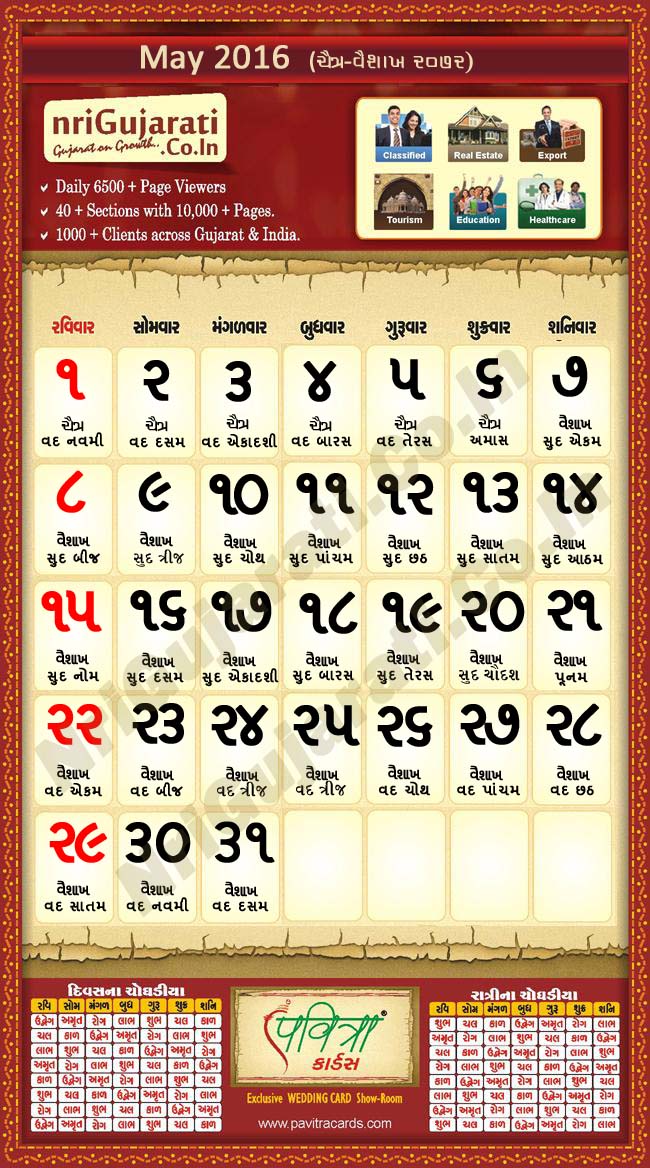 May 2016 (ચૈત્ર-વૈશાખ ૨૦૭૨)
nriGujarati
Gujarat on Growth..
.Co.In
Daily 6500 + Page Viewers
40 + Sections with 10,000 + Pages.
1000 + Clients across Gujarat & India.
Classified Real Estate Export
Tourism Education Healthcare
રવિવાર સોમવાર મંગળવાર બુધવાર ગુરૂવાર શુક્રવાર શનિવાર
૧ ૨ ૩ ૪ ૫ ૬ ૭
ચૈત્ર ચૈત્ર ચૈત્ર ચૈત્ર ચૈત્ર ચૈત્ર વૈશાખ
વદ નવમી વદ દસમ વદ એકાદશી વદ બારસ વદ તેરસ અમાસ સુદ એકમ
૮ ૯ ૧૦ ૧૧ ૧૨ ૧૩ ૧૪
વૈશાખ વૈશાખ વૈશાખ વૈશાખ વૈશાખ વૈશાખ વૈશાખ
સુદ બીજ સુદ ત્રીજ સુદ ચોથ સુદ પાંચમ સુદ છઠ સુદ સાતમ સુદ આઠમ
૧૫ ૧૬ ૧૭ ૧૮ ૧૯ ૨૦ ૨૧
વૈશાખ વૈશાખ વૈશાખ વૈશાખ વૈશાખ વૈશાખ વૈશાખ
સુદ નોમ સુદ દસમ સુદ એકાદશી સુદ બારસ સુદ તેરસ સુદ ચૌદશ પૂનમ
૨૨ ૨૩ ૨૪ ૨૫ ૨૬ ૨૭ ૨૮
વૈશાખ વૈશાખ વૈશાખ વૈશાખ વૈશાખ વૈશાખ વૈશાખ
વદ એકમ વદ બીજ વદ ત્રીજ વદ ત્રીજ વદ ચોથ વદ પાંચમ વદ છઠ
૨૯ ૩૦ ૩૧
વૈશાખ વૈશાખ વૈશાખ
વદ સાતમ વદ નવમી વદ દસમ
NriGujarati.co.in
NriGujarati.co.in
દિવસના ચોઘડીયા
રવિ સોમ મંગળ બુધ ગુરૂ શુક્ર શનિ
ઉદ્વેગ અમૃત રોગ લાભ શુભ ચલ કાળ
ચલ કાળ ઉદ્વેગ અમૃત રોગ લાભ શુભ
લાભ શુભ ચલ કાળ ઉદ્વેગ અમૃત રોગ
અમૃત રોગ લાભ શુભ ચલ કાળ ઉદ્વેગ
કાળ ઉદ્વેગ અમૃત રોગ લાભ શુભ ચલ
શુભ ચલ કાળ ઉદ્વેગ અમૃત રોગ લાભ
રોગ લાભ શુભ ચલ કાળ ઉદ્વેગ અમૃત
ઉદ્વેગ અમૃત રોગ લાભ શુભ ચલ કાળ
પવિત્રા®
કાર્ડસ
Exclusive WEDDING CARD Show-Room
www.pavitracards.com
રાત્રીના ચોઘડીયા
રવિ સોમ મંગળ બુધ ગુરૂ શુક્ર શનિ
શુભ ચલ કાળ ઉદ્વેગ અમૃત રોગ લાભ
અમૃત રોગ લાભ શુભ ચલ કાળ ઉદ્વેગ
ચલ કાળ ઉદ્વેગ અમૃત રોગ લાભ શુભ
રોગ લાભ શુભ ચલ કાળ ઉદ્વેગ અમૃત
કાળ ઉદ્વેગ અમૃત રોગ લાભ શુભ ચલ
લાભ શુભ ચલ કાળ ઉદ્વેગ અમૃત રોગ
ઉદ્વેગ અમૃત રોગ લાભ શુભ ચલ કાળ
શુભ ચલ કાળ ઉદ્વેગ અમૃત રોગ લાભ